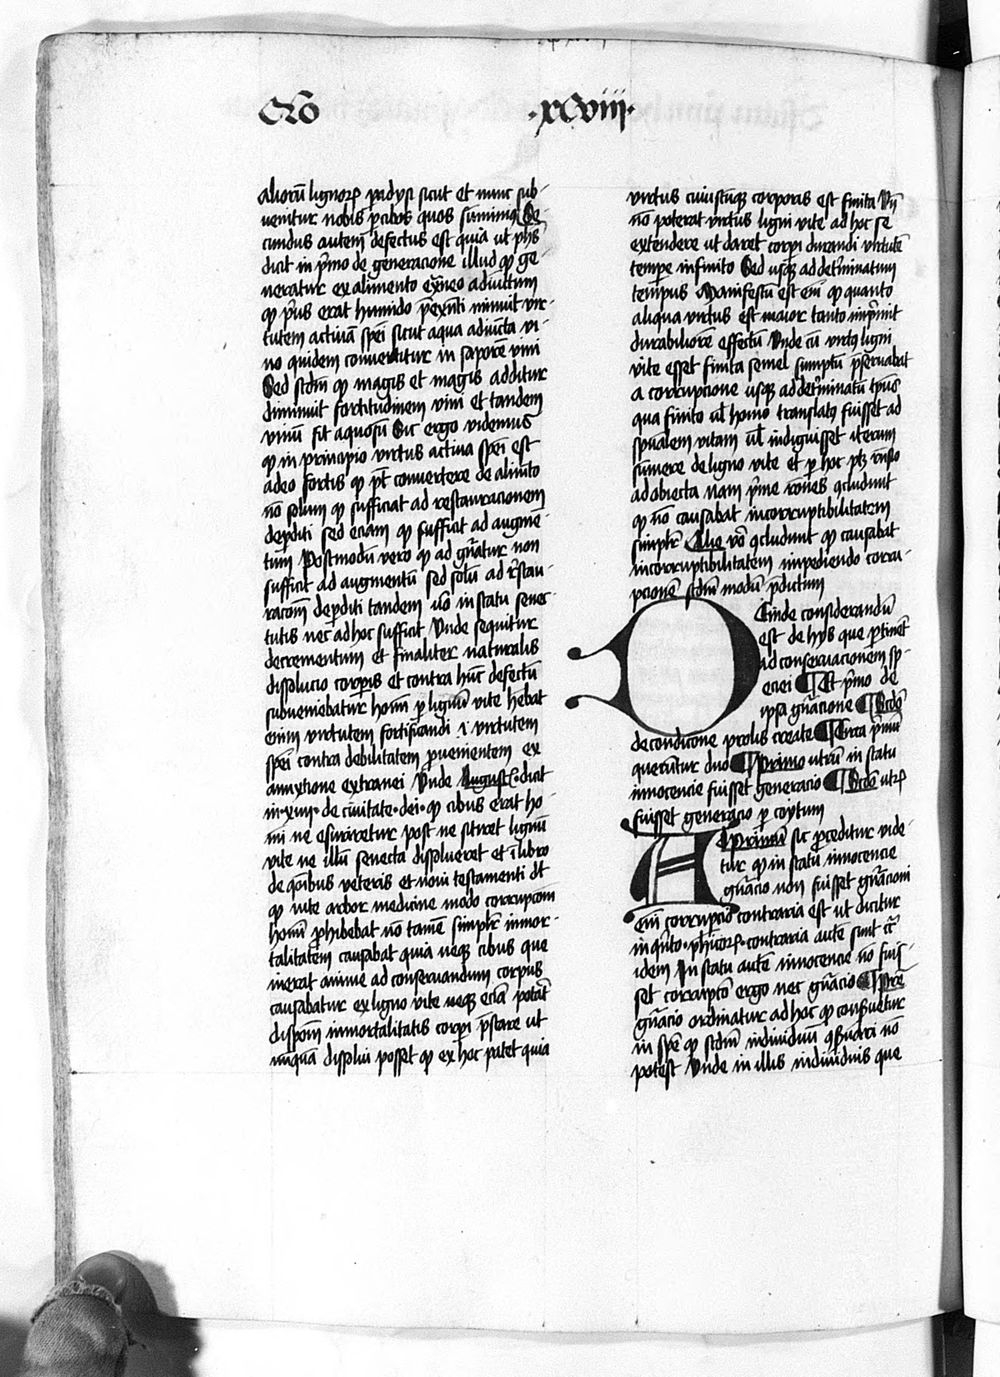 Qo .xCviij.
aliorū lignorꝝ padysi sicut et nunc sub-
uenitur nobis ꝑ cibos quos sumimꝰ Se-
cundus autem defectus est quia ut phūs
dicit in pͥmo de generacione illud qꝫ ge-
neratur ex alimento ex̄neo adiūctum
qꝫ pͥus erat humido p̄exn̄ti minuit vir-
tutem actiuā spēi sicut aqua adiūcta vi-
no quidem conuertitur in saporē vini
Sed scd̄m qꝫ magis et magis additur
diminuit fortitudinem vini et tandem
vinū fit aquosū Sic ergo videmus
qꝫ in principio virtus actiua spēi est
adeo fortis qꝫ pt̄ conuertere de alimēto
nō solum qꝫ sufficiat ad restauracionem
deꝑditi sed eciam qꝫ sufficit ad augmē-
tum Postmodū vero qꝫ ad gn̄atur non
sufficit ad augmentū sed solū ad r̄stau-
racōm deꝑditi tandem v̄o in statu senec-
tutis nec ad hoc sufficit Vnde sequitur
decrementum et finaliter naturalis
dissolucio corꝑis et contra hūc defectū
subueniebatur homī ꝑ lignū vite hēbat
enim virtutem fortificandi .i. virtutem
spēi contra debilitatem ꝓuenientem ex
amixtione extranei Vnde Augustꝰ. dicit
in .xiiij. de ciuitate .dei. qꝫ cibus erat ho-
mī ne esuriretur post ne sitiret lignū
vite ne illū senecta dissolueret et ī libro
de qōibus veteris et noui testamenti dt̄
qꝫ vite arbor medicine modo corrupcōm
homī ꝓhibebat nō tamē simplr̄ inmor-
talitatem causabat quia neqꝫ cibus que
inerat anime ad conseruandum corpus
causabatur ex ligno vite neqꝫ eciā potat̄
dispōm inmortalitatis corpi p̄stare ut
nūquā dissolui posset qꝫ ex hoc patet quia
virtus cuiuscūqꝫ corporis est finita Vn̄
nō poterat virtus ligni vite ad hoc se
extendere ut daret corpi durandi virtutē
tempe infinito Sed usqꝫ ad det̄minatum
tempus Manifestū est em̄ qꝫ quanto
aliqua virtus est maior tanto inpͥmit
durabiliorē effectū Vnde cū virtꝰ ligni
vite esset finita semel sumptū p̄seruabat
a corrupcione usqꝫ ad det̄minatū tp̄us
quo finito ul̄ homo translatꝰ fuisset ad
spūalem vitam ul̄ indiguisset iterum
sumere de ligno vite et ꝑ hoc ptꝫ rn̄sio
ad obiecta nam pͥme rōnes ꝯcludunt
qꝫ nō causabat incorruptibilitatem
simplr̄ Alie v̄o ꝯcludunt qꝫ causabat
incorruptibilitatem impediendo corru-
pcionē scd̄m modū p̄dictum
Deinde considerandū
est de hijs que ꝑtinēt
ad conseruacionem sp-
eciei ¶Et pͥmo de
ipsa gn̄acione ¶Scd̄o
de condicione prolis create ¶Circa pͥmū
queruntur duo ¶Primo utrū in statu
innocencie fuisset generacio ¶Scd̄o utrꝫ
fuisset generacio ꝑ coytum
Ad primū sic ꝓceditur vide-
tur qꝫ in statu innocencie
gn̄acio non fuisset gn̄acioni
em̄ corrupcio contraria est ut dicitur
in qͥnto .phīcorꝫ. contraria autē sunt cͥ
idem In statu autē innocencie nō fuis-
set corrupcō ergo nec gn̄acio ¶Pre͡
gn̄acio ordinatur ad hoc qꝫ conseruetur
in spē qꝫ scd̄m indiuiduū ꝯseruari nō
potest Vnde in illis indiuiduis que